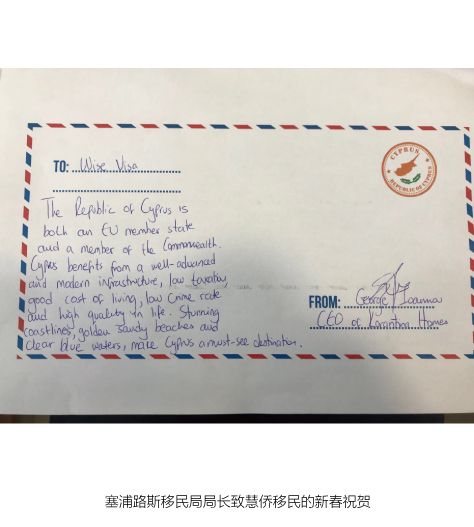 TO: Wise Visa
CYPRUS
REPUBLIC OF CYPRUS
The Republic of Cyprus is
both an EU member state
and a member of the Commonwealth.
Cyprus benefits from a well-advanced
and modern infrastructure, low taxation
good cost of living, low crime rate
and high quality in life. Stunning
coastlines, golden sandy beaches and
clear blue waters, make Cyprus a must-see destination.
FROM: George Ioannou
CEO of Karantna Homes
塞浦路斯移民局局长致慧侨移民的新春祝贺